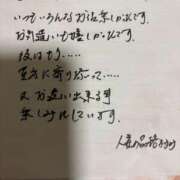 いつもいろんなお話楽しかったです。
お気遣いも嬉しかったです。
夜はもう....
互いに寄り添って.....
又お逢い出来る事
楽しみにしています。